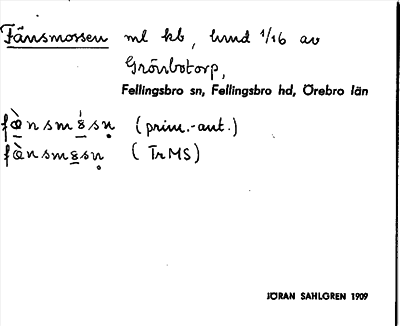 Fänsmossen ml kb, hmd 1/16 av
Grönbotorp,
Fellingsbro sn, Fellingsbro hd, Örebro län
fæ̀nsm8́sṇ (prim.-ant.)
fæ̀nsm8sṇ (TrMS)
JÖRAN SAHLGREN 1909